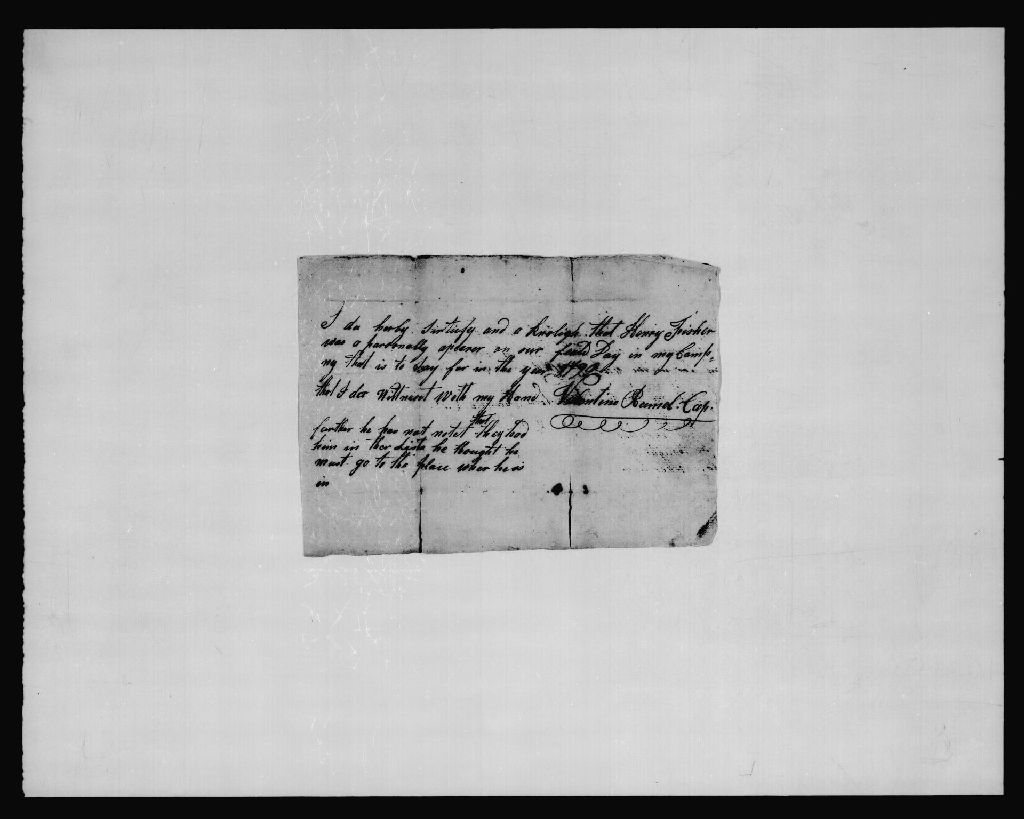 I do herby Sertiefy and a knoligh that Henry Frisher
was a parsonally aperer on our feald Day in my Comp=
ny that is to Say for in the year 1790
that I der Wittnest With my Hand Valentine Rumel. Cap.
further he has not notet that they had
him in ther Lists he thought he
must go to the place wher he is
in